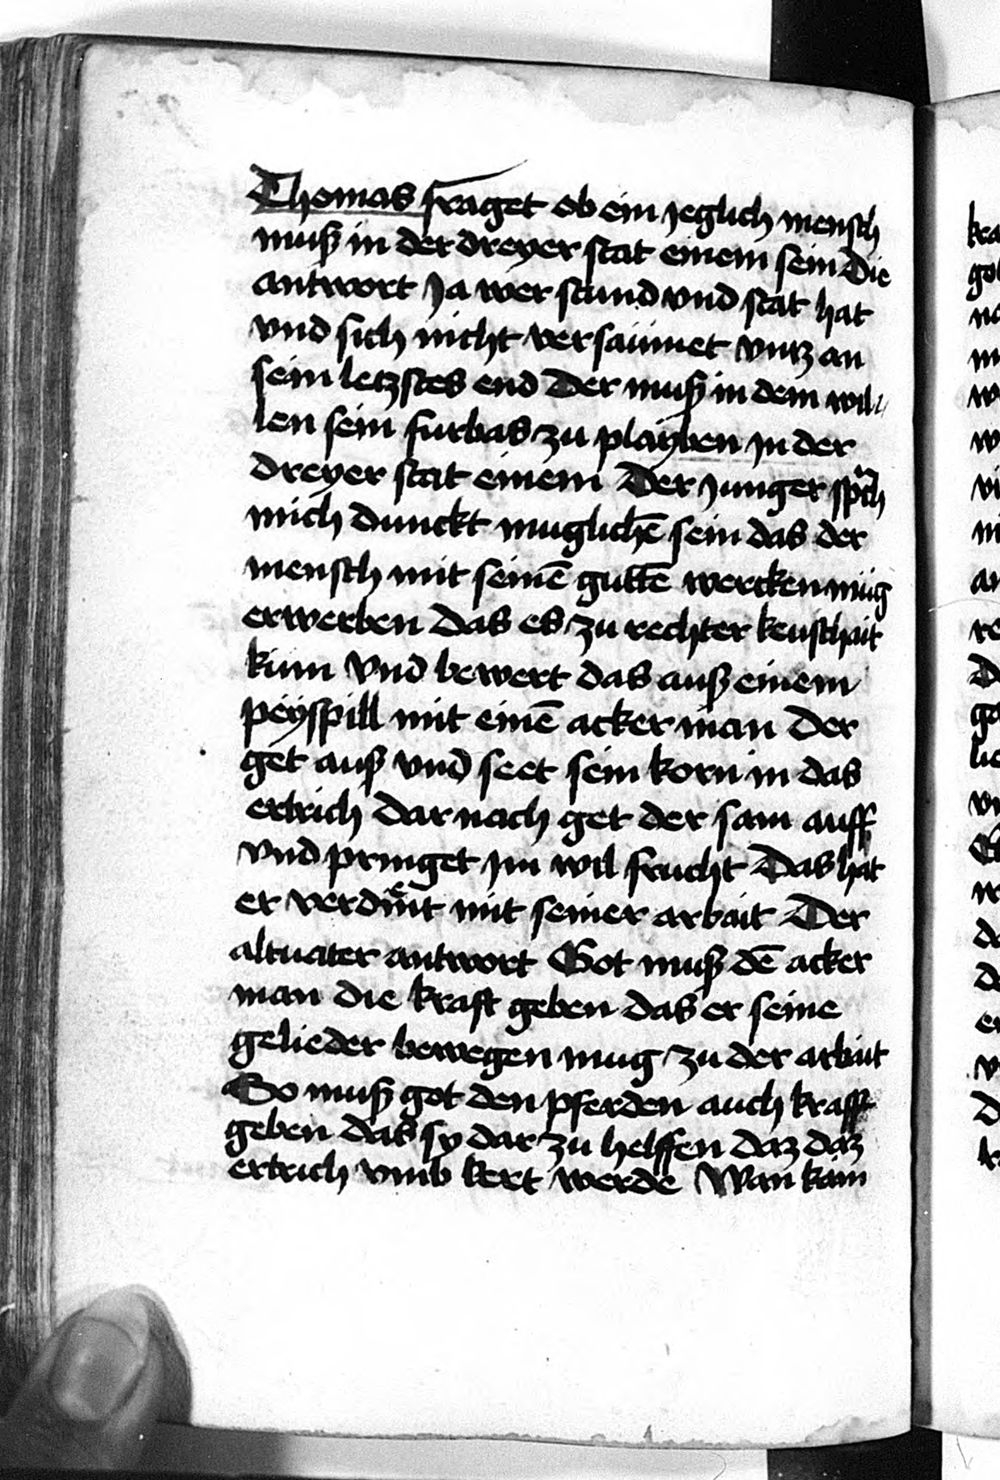 Thomas fraget ob ein jeglich mensch
muß in der dreyer stat einem sein Die
antwort Ja wer stund vnd stat hat
vnd sich nicht versaümet vntz an
sein letzstes end Der muß in dem wil
len sein furbas zu playben jn der
dreyer stat einem Der junger sprch
mich dunckt muglichē sein das der
mensch mit seinē guttē wercken müg
erwerben Das es zu rechter keuschait
kum vnd bewert das auß einem
peÿspill mit einē acker man Der
get auß vnd seet sein korn in das
ertrich Dar nach get der sam auff
vnd pringet jm wil frucht Das hat
er verdint mit seiner arbait Der
altuater antwort Got muß dē acker
man die kraft geben das er seine
gelieder bewegen mug zu der arbait
So muß got den pferden auch krafft
geben das sy dar zu helffen daz daz
ertrich vmb kert werde Wan kain